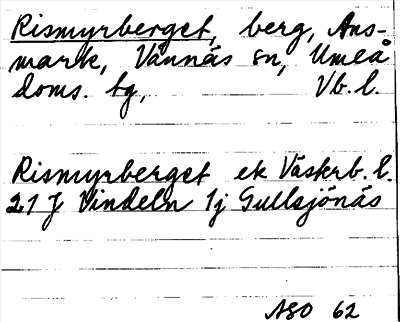 Rismyrberget, berg, Ans-
mark, Vännäs sn, Umeå
doms. tg, Vb. l.
Rismyrberget ek Västerb. l.
21 J Vindeln 1j Gullsjönäs
ASO 62